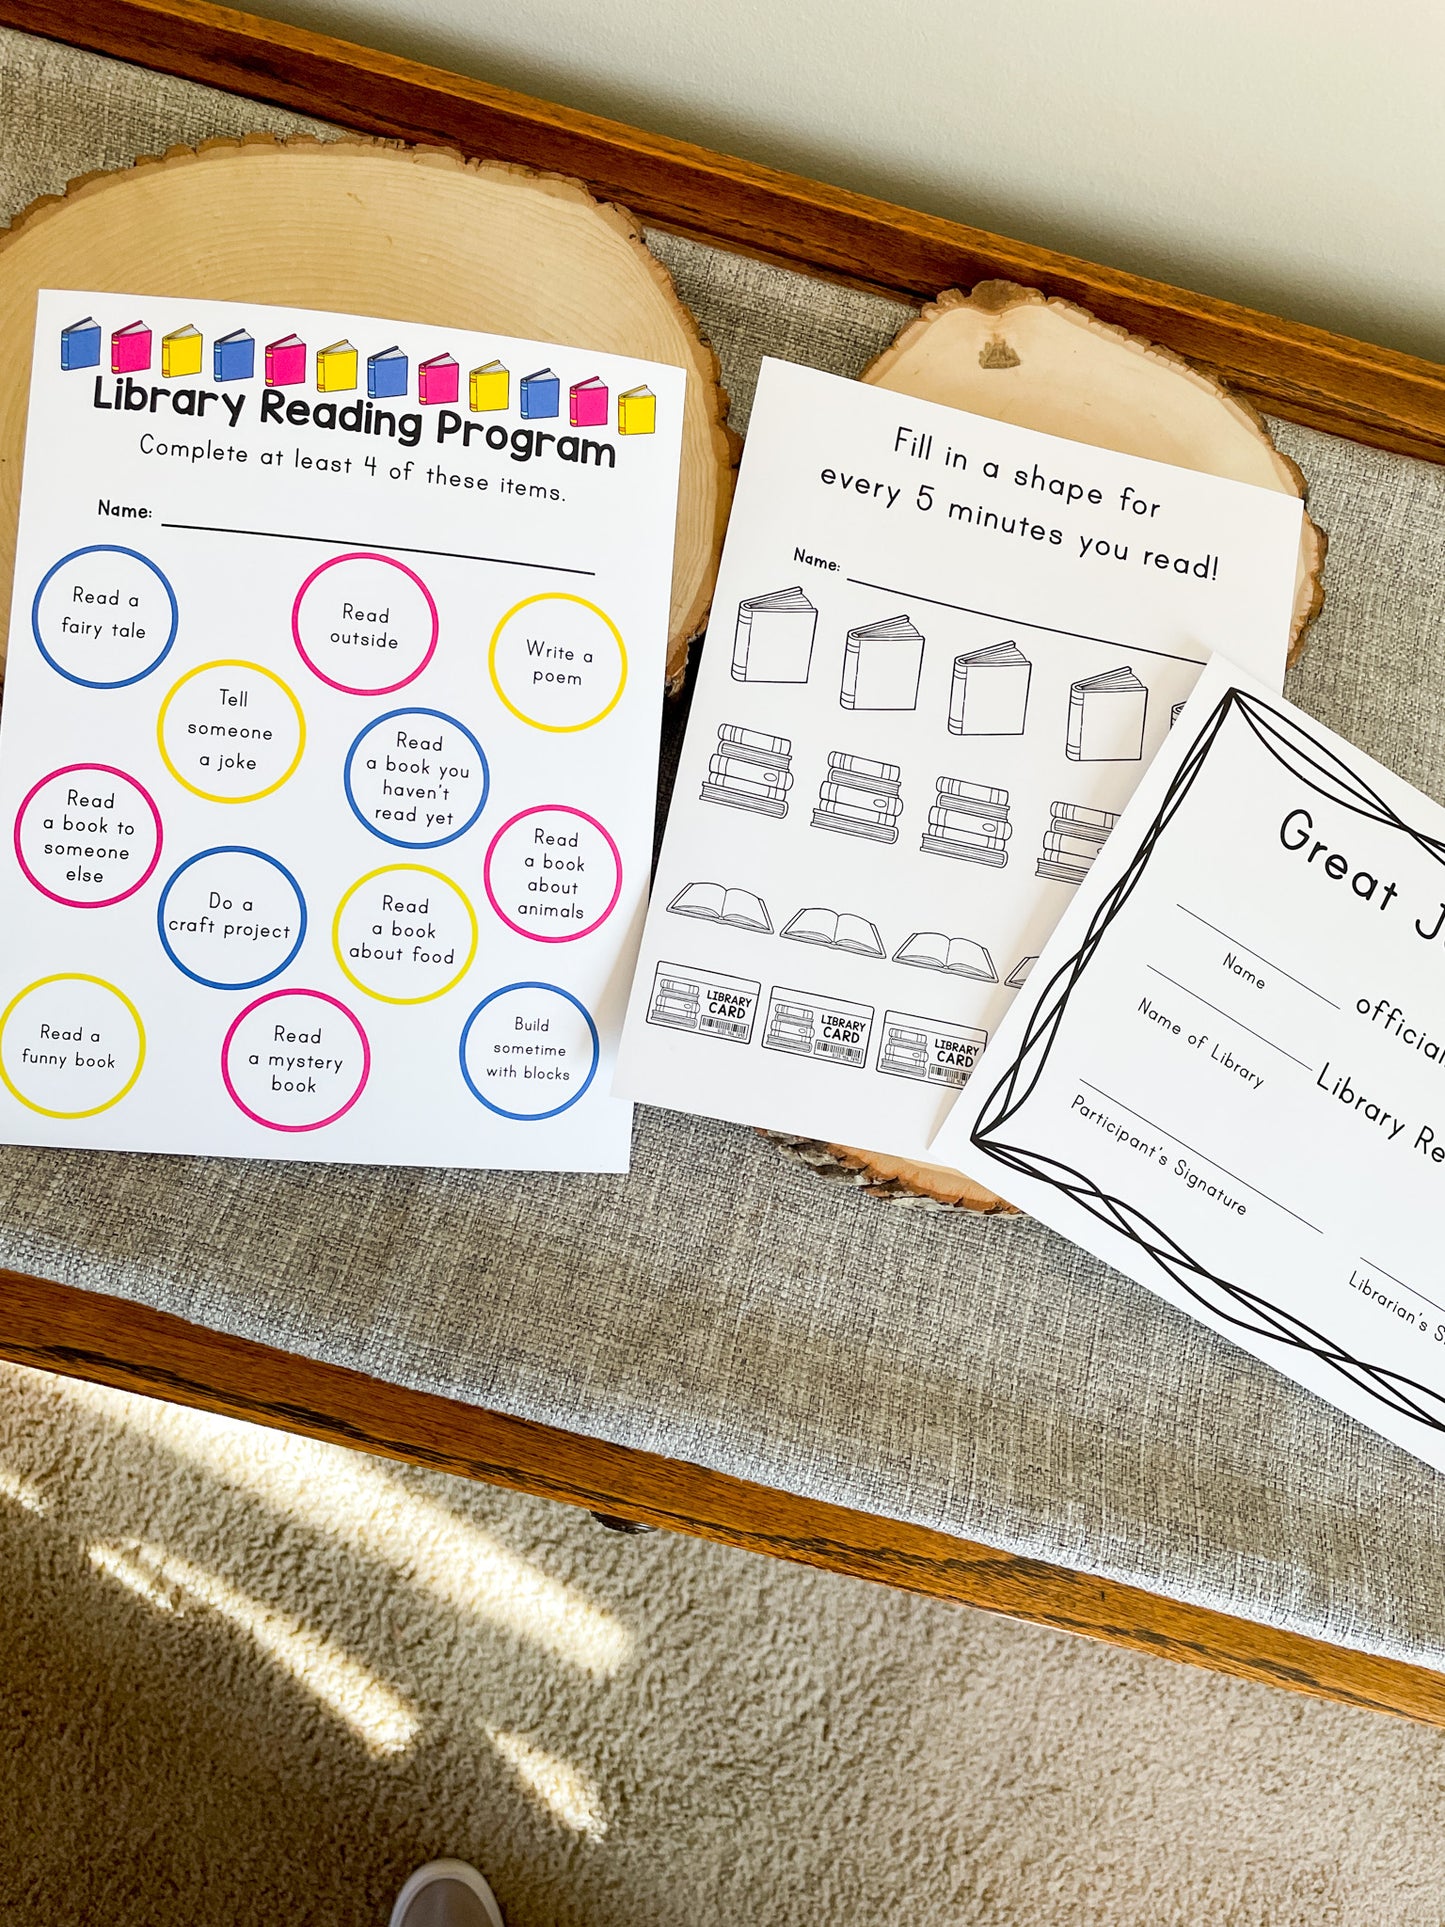 Library Reading Program
Complete at least 4 of these items.
Name:
Read a
fairy tale
Read
outside
Write a
poem
Tell
someone
a joke
Read
a book you
haven't
read yet
Read
a book to
someone
else
Read
a book
about
animals
Do a
craft project
Read
a book
about food
Read a
funny book
Read
a mystery
book
Build
sometime
with blocks
Fill in a shape for
every 5 minutes you read!
Name:
LIBRARY
CARD
LIBRARY
CARD
LIBRARY
CARD
Great
Name
Name of Library
Library
Participant's Signature
Librarian's